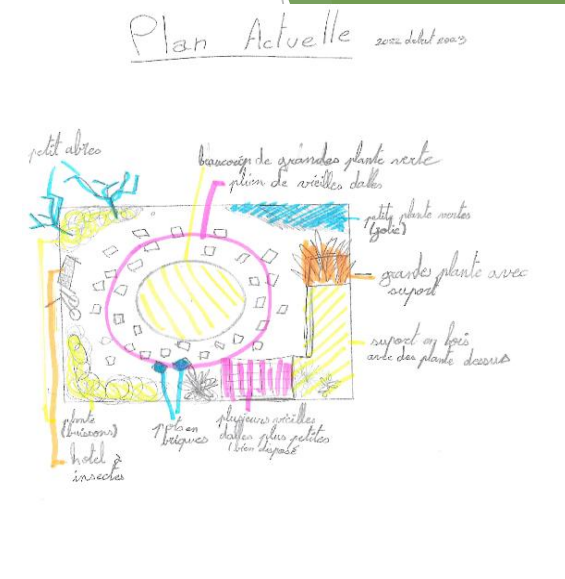 Plan Actuelle 2022 debut 2023
petit abres
beaucoup de grandes plante verte
plein de vieilles dalles
petite plante vertes
(jolie)
grandes plante avec
suport
suport en bois
avec des plante dessus
(buissons)
hotel à
insectes
pots en
briques
plusieurs vieilles
dalles plus petites
(bien disposé